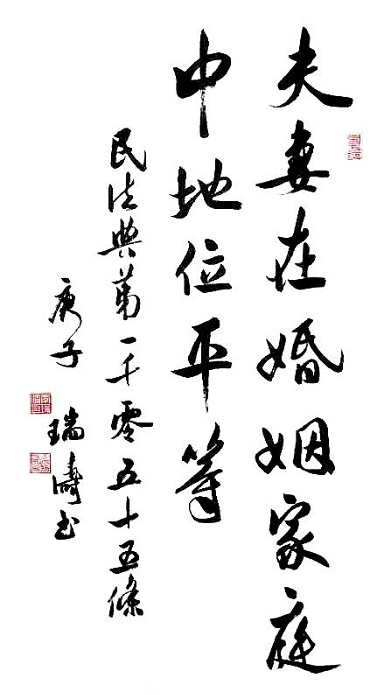 夫妻在婚姻家庭
中地位平等
民法典第一千零五十五條
庚子 瑞濤书